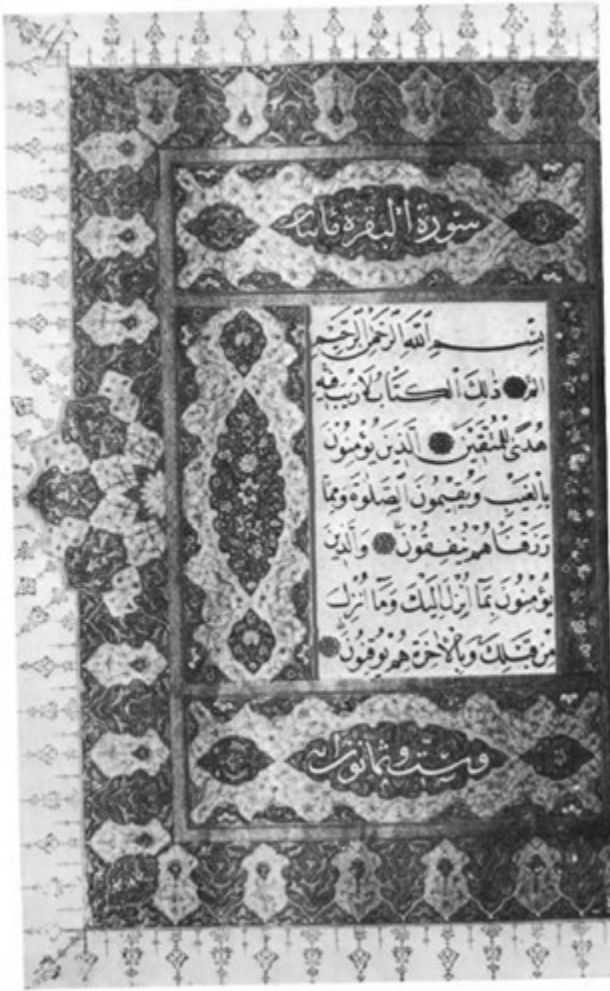 سورة البقرة مائتان
بِسْمِ اللهِ الرَّحْمٰنِ الرَّحِيمِ
الم ذٰلِكَ الْكِتَابُ لَا رَيْبَ فِيهِ
هُدًى لِلْمُتَّقِينَ اَلَّذِينَ يُؤْمِنُونَ
بِالْغَيْبِ وَيُقِيمُونَ الصَّلٰوةَ وَمِمَّا
رَزَقْنَاهُمْ يُنْفِقُونَ وَالَّذِينَ
يُؤْمِنُونَ بِمَا اُنْزِلَ اِلَيْكَ وَمَا اُنْزِلَ
مِنْ قَبْلِكَ وَبِالْاٰخِرَةِ هُمْ يُوقِنُونَ
وست وثمانون اية